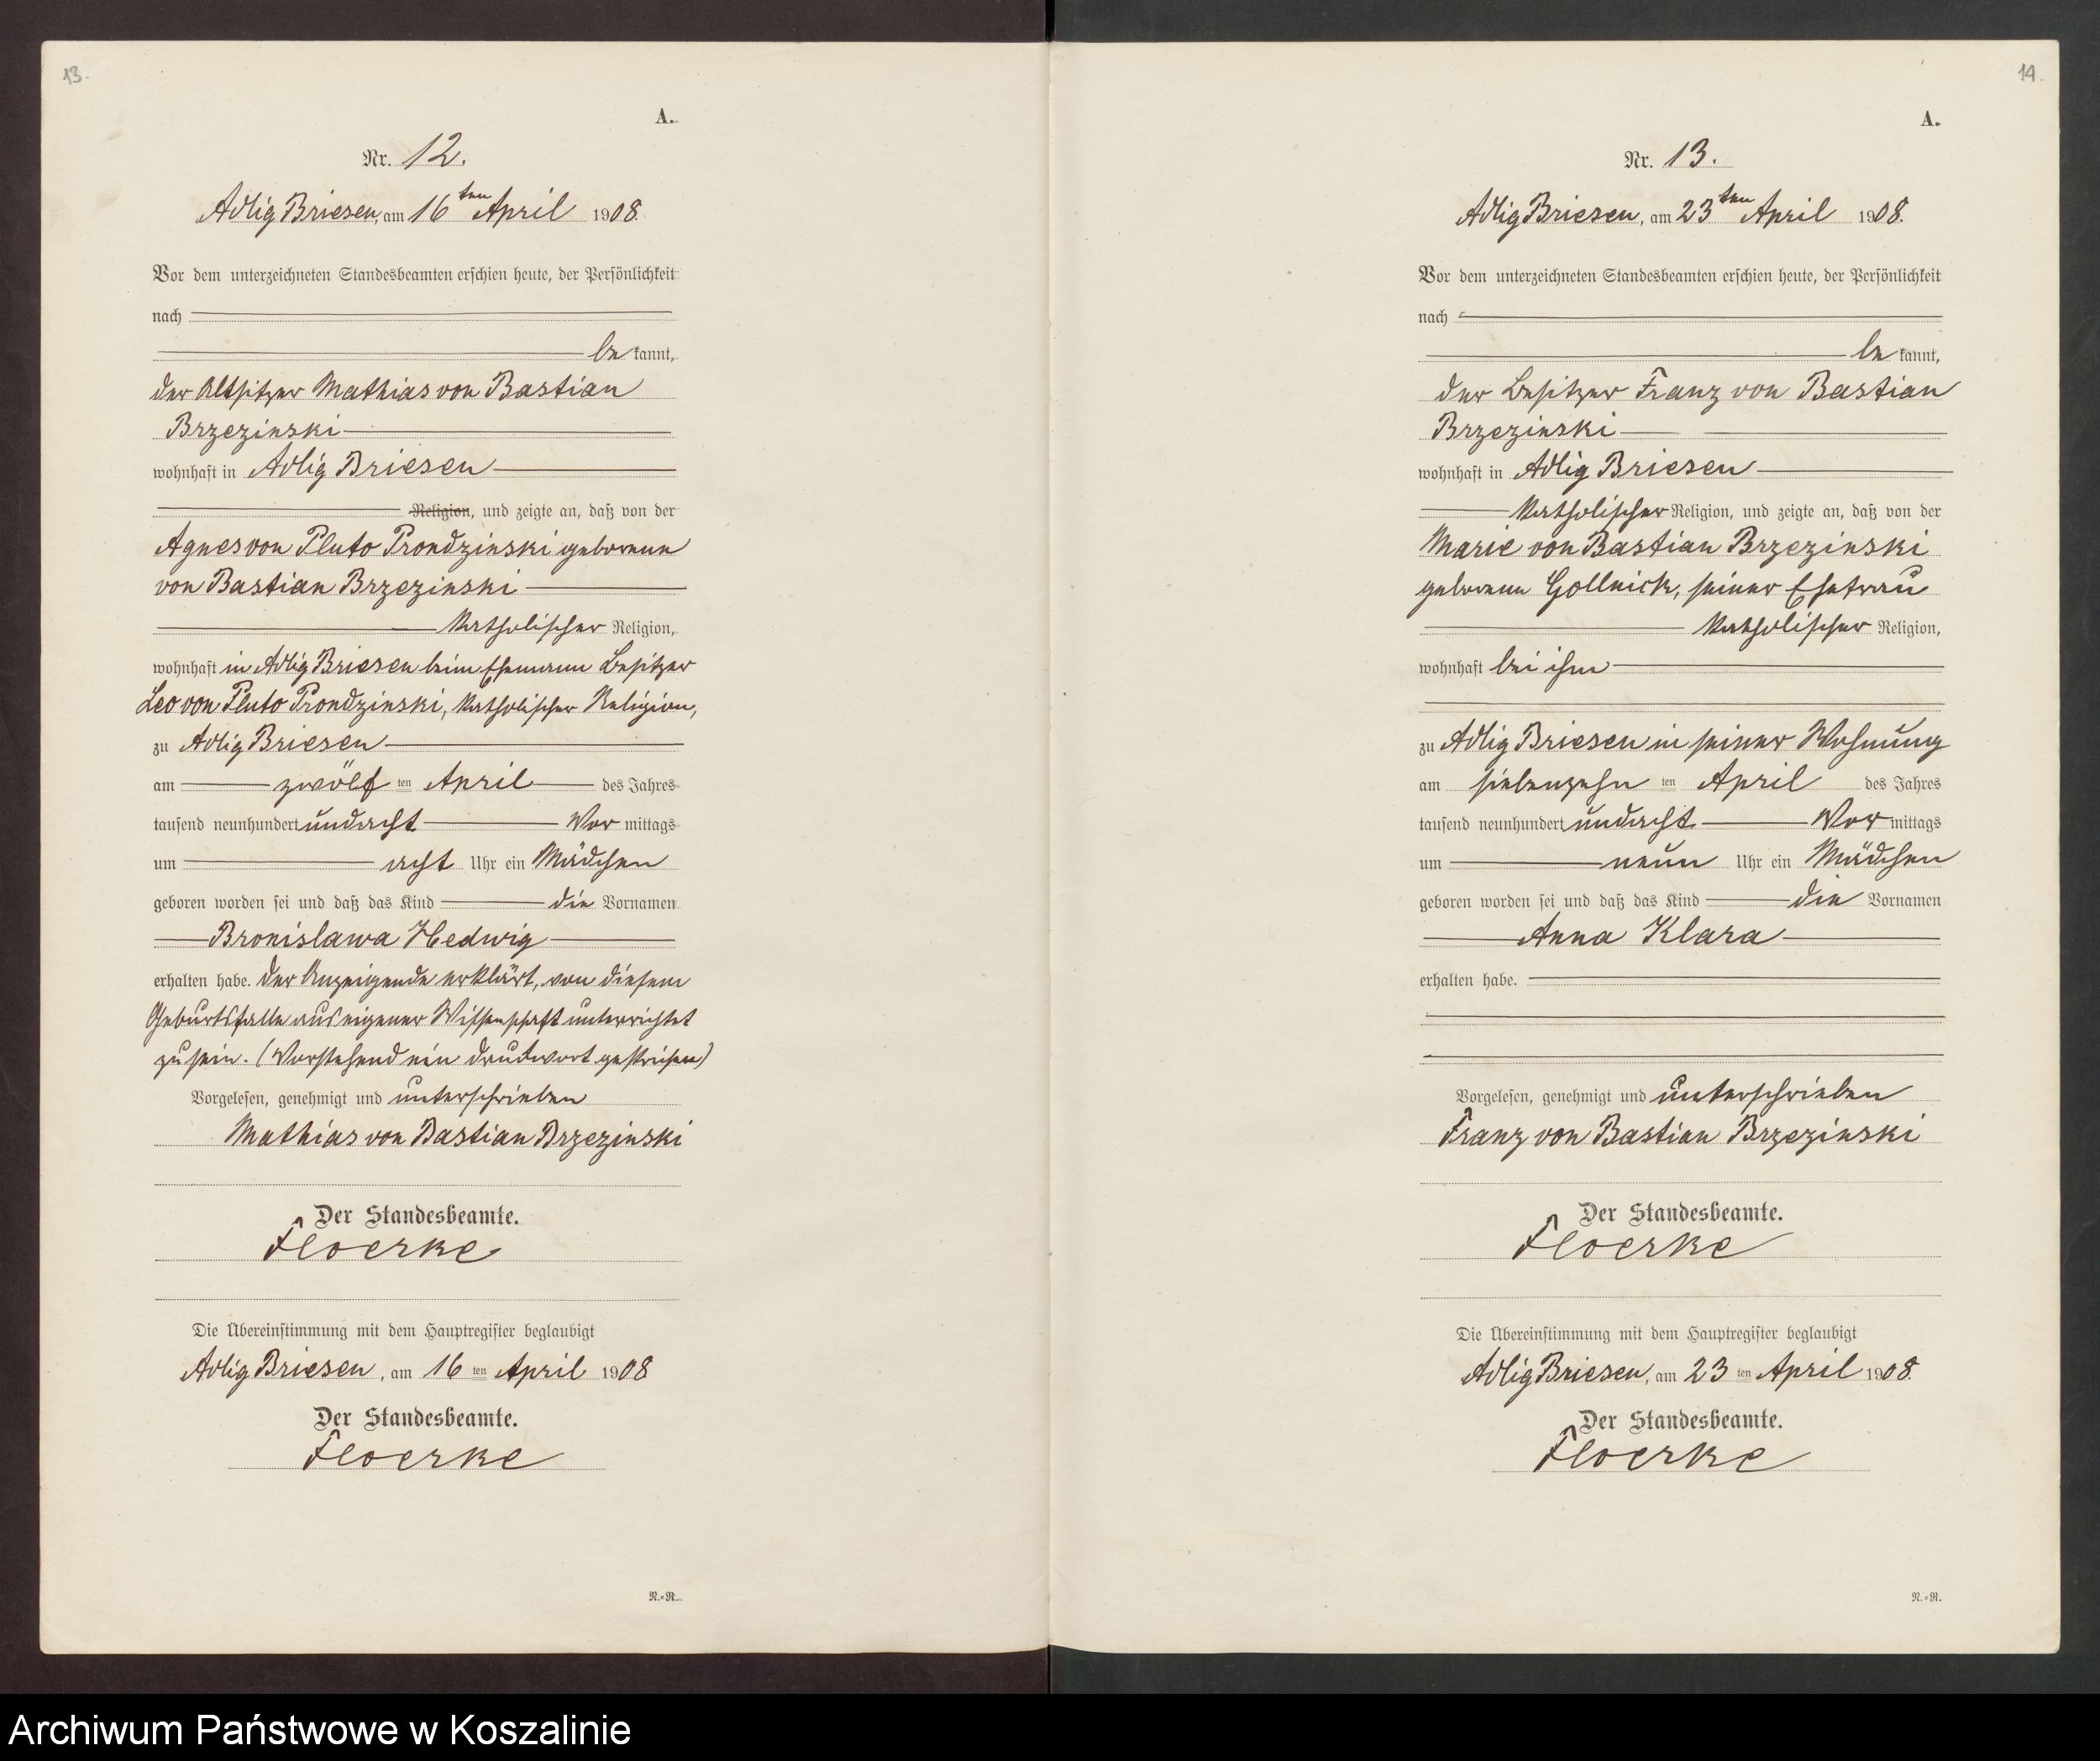 13.
A.
Nr. 12.
Adlig Briesen, am 16ten April 1908.
Vor dem unterzeichneten Standesbeamten erschien heute, der Persönlichkeit
nach
be kannt,
der Altsitzer Mathias von Bastian
Brzezinski
wohnhaft in Adlig Briesen
Religion, und zeigte an, daß von der
Agnes von Pluto Prondzinski geborene
von Bastian Brzezinski
katholischer Religion,
wohnhaft in Adlig Briesen beim Ehemann Besitzer
Leo von Pluto Prondzinski, katholischer Religion,
zu Adlig Briesen
am zwölf ten April des Jahres
tausend neunhundert undacht Vor mittags
um acht Uhr ein Mädchen
geboren worden sei und daß das Kind die Vornamen
Bronislawa Hedwig
erhalten habe. Der Anzeigende erklärt, von diesem
Geburtsfalle aus eigener Wissenschaft unterrichtet
zu sein. (Vorstehend ein Druckwort gestrichen)
Vorgelesen, genehmigt und unterschrieben
Mathias von Bastian Brzezinski
Der Standesbeamte.
Floerke
Die Übereinstimmung mit dem Hauptregister beglaubigt
Adlig Briesen, am 16 ten April 1908
Der Standesbeamte.
Floerke
N.=R.
14.
A.
Nr. 13.
Adlig Briesen, am 23ten April 1908.
Vor dem unterzeichneten Standesbeamten erschien heute, der Persönlichkeit
nach
be kannt,
der Besitzer Franz von Bastian
Brzezinski
wohnhaft in Adlig Briesen
katholischer Religion, und zeigte an, daß von der
Marie von Bastian Brzezinski
geborene Gollnick, seiner Ehefrau
katholischer Religion,
wohnhaft bei ihm
zu Adlig Briesen in seiner Wohnung
am siebenzehn ten April des Jahres
tausend neunhundert undacht Vor mittags
um neun Uhr ein Mädchen
geboren worden sei und daß das Kind die Vornamen
Anna Klara
erhalten habe.
Vorgelesen, genehmigt und unterschrieben
Franz von Bastian Brzezinski
Der Standesbeamte.
Floerke
Die Übereinstimmung mit dem Hauptregister beglaubigt
Adlig Briesen, am 23 ten April 1908.
Der Standesbeamte.
Floerke
N.=R.
Archiwum Państwowe w Koszalinie